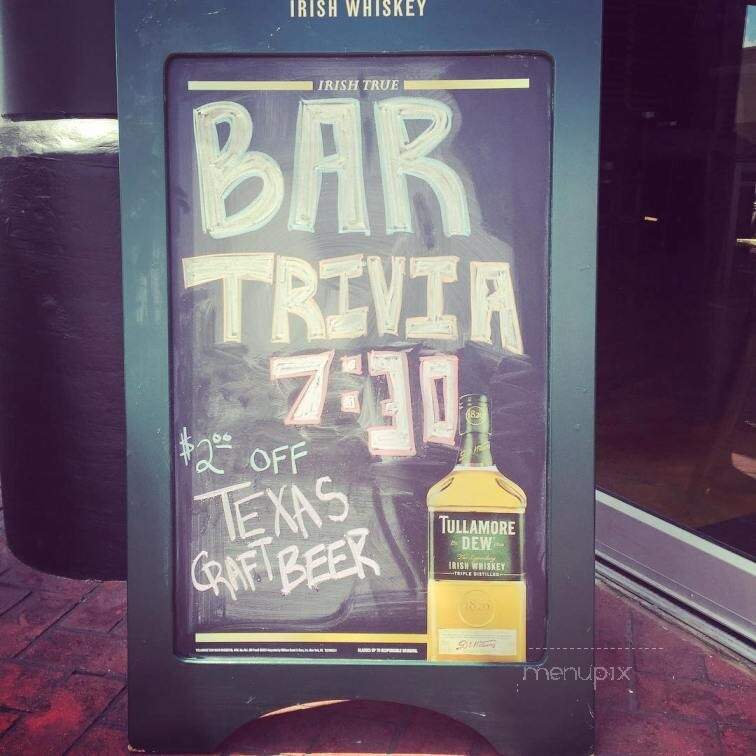 IRISH WHISKEY
IRISH TRUE
BAR
TRIVIA
7:30
$2.00 OFF
TEXAS
CRAFT BEER
1829
TULLAMORE
DEW
IRISH WHISKEY
TRIPLE DISTILLED
1829
menupix